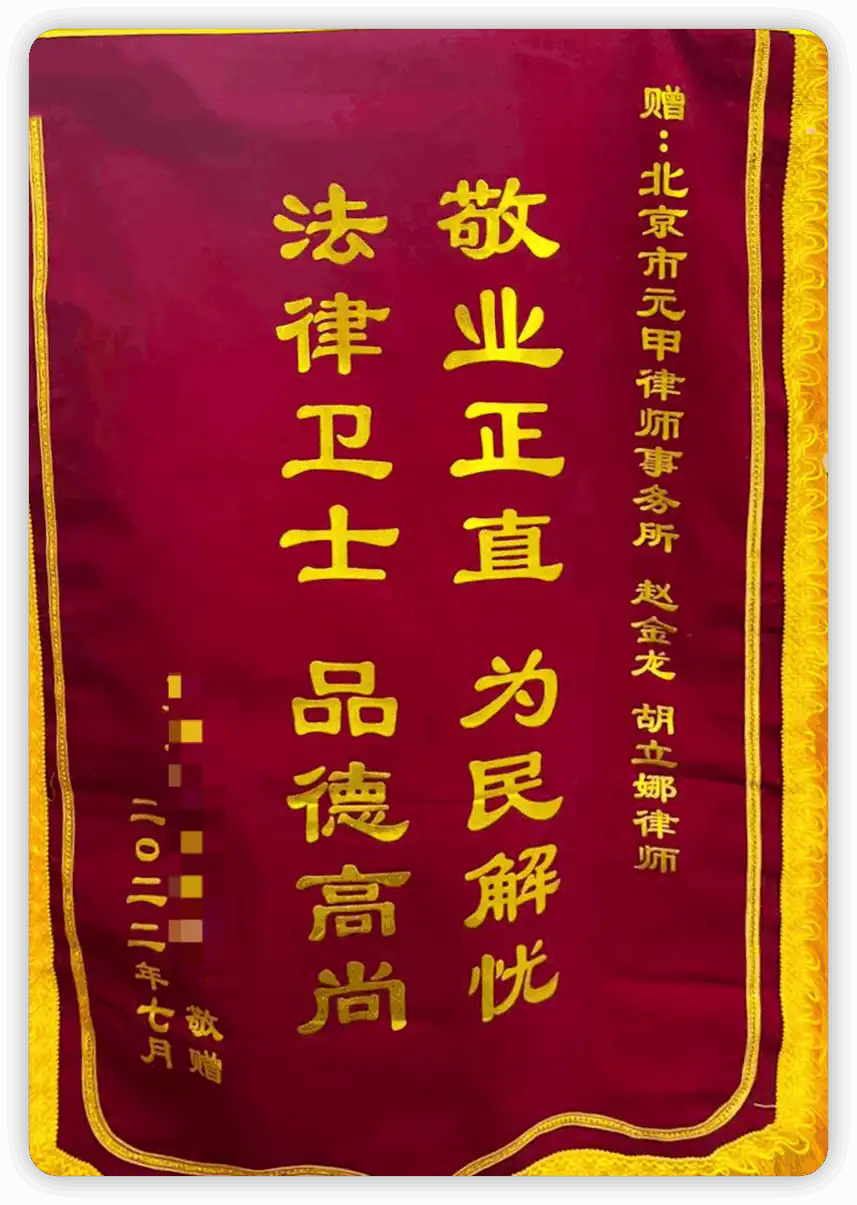 赠：北京市元甲律师事务所 赵金龙 胡立娜律师
敬业正直 为民解忧
法律卫士 品德高尚
敬赠
二〇二二年七月